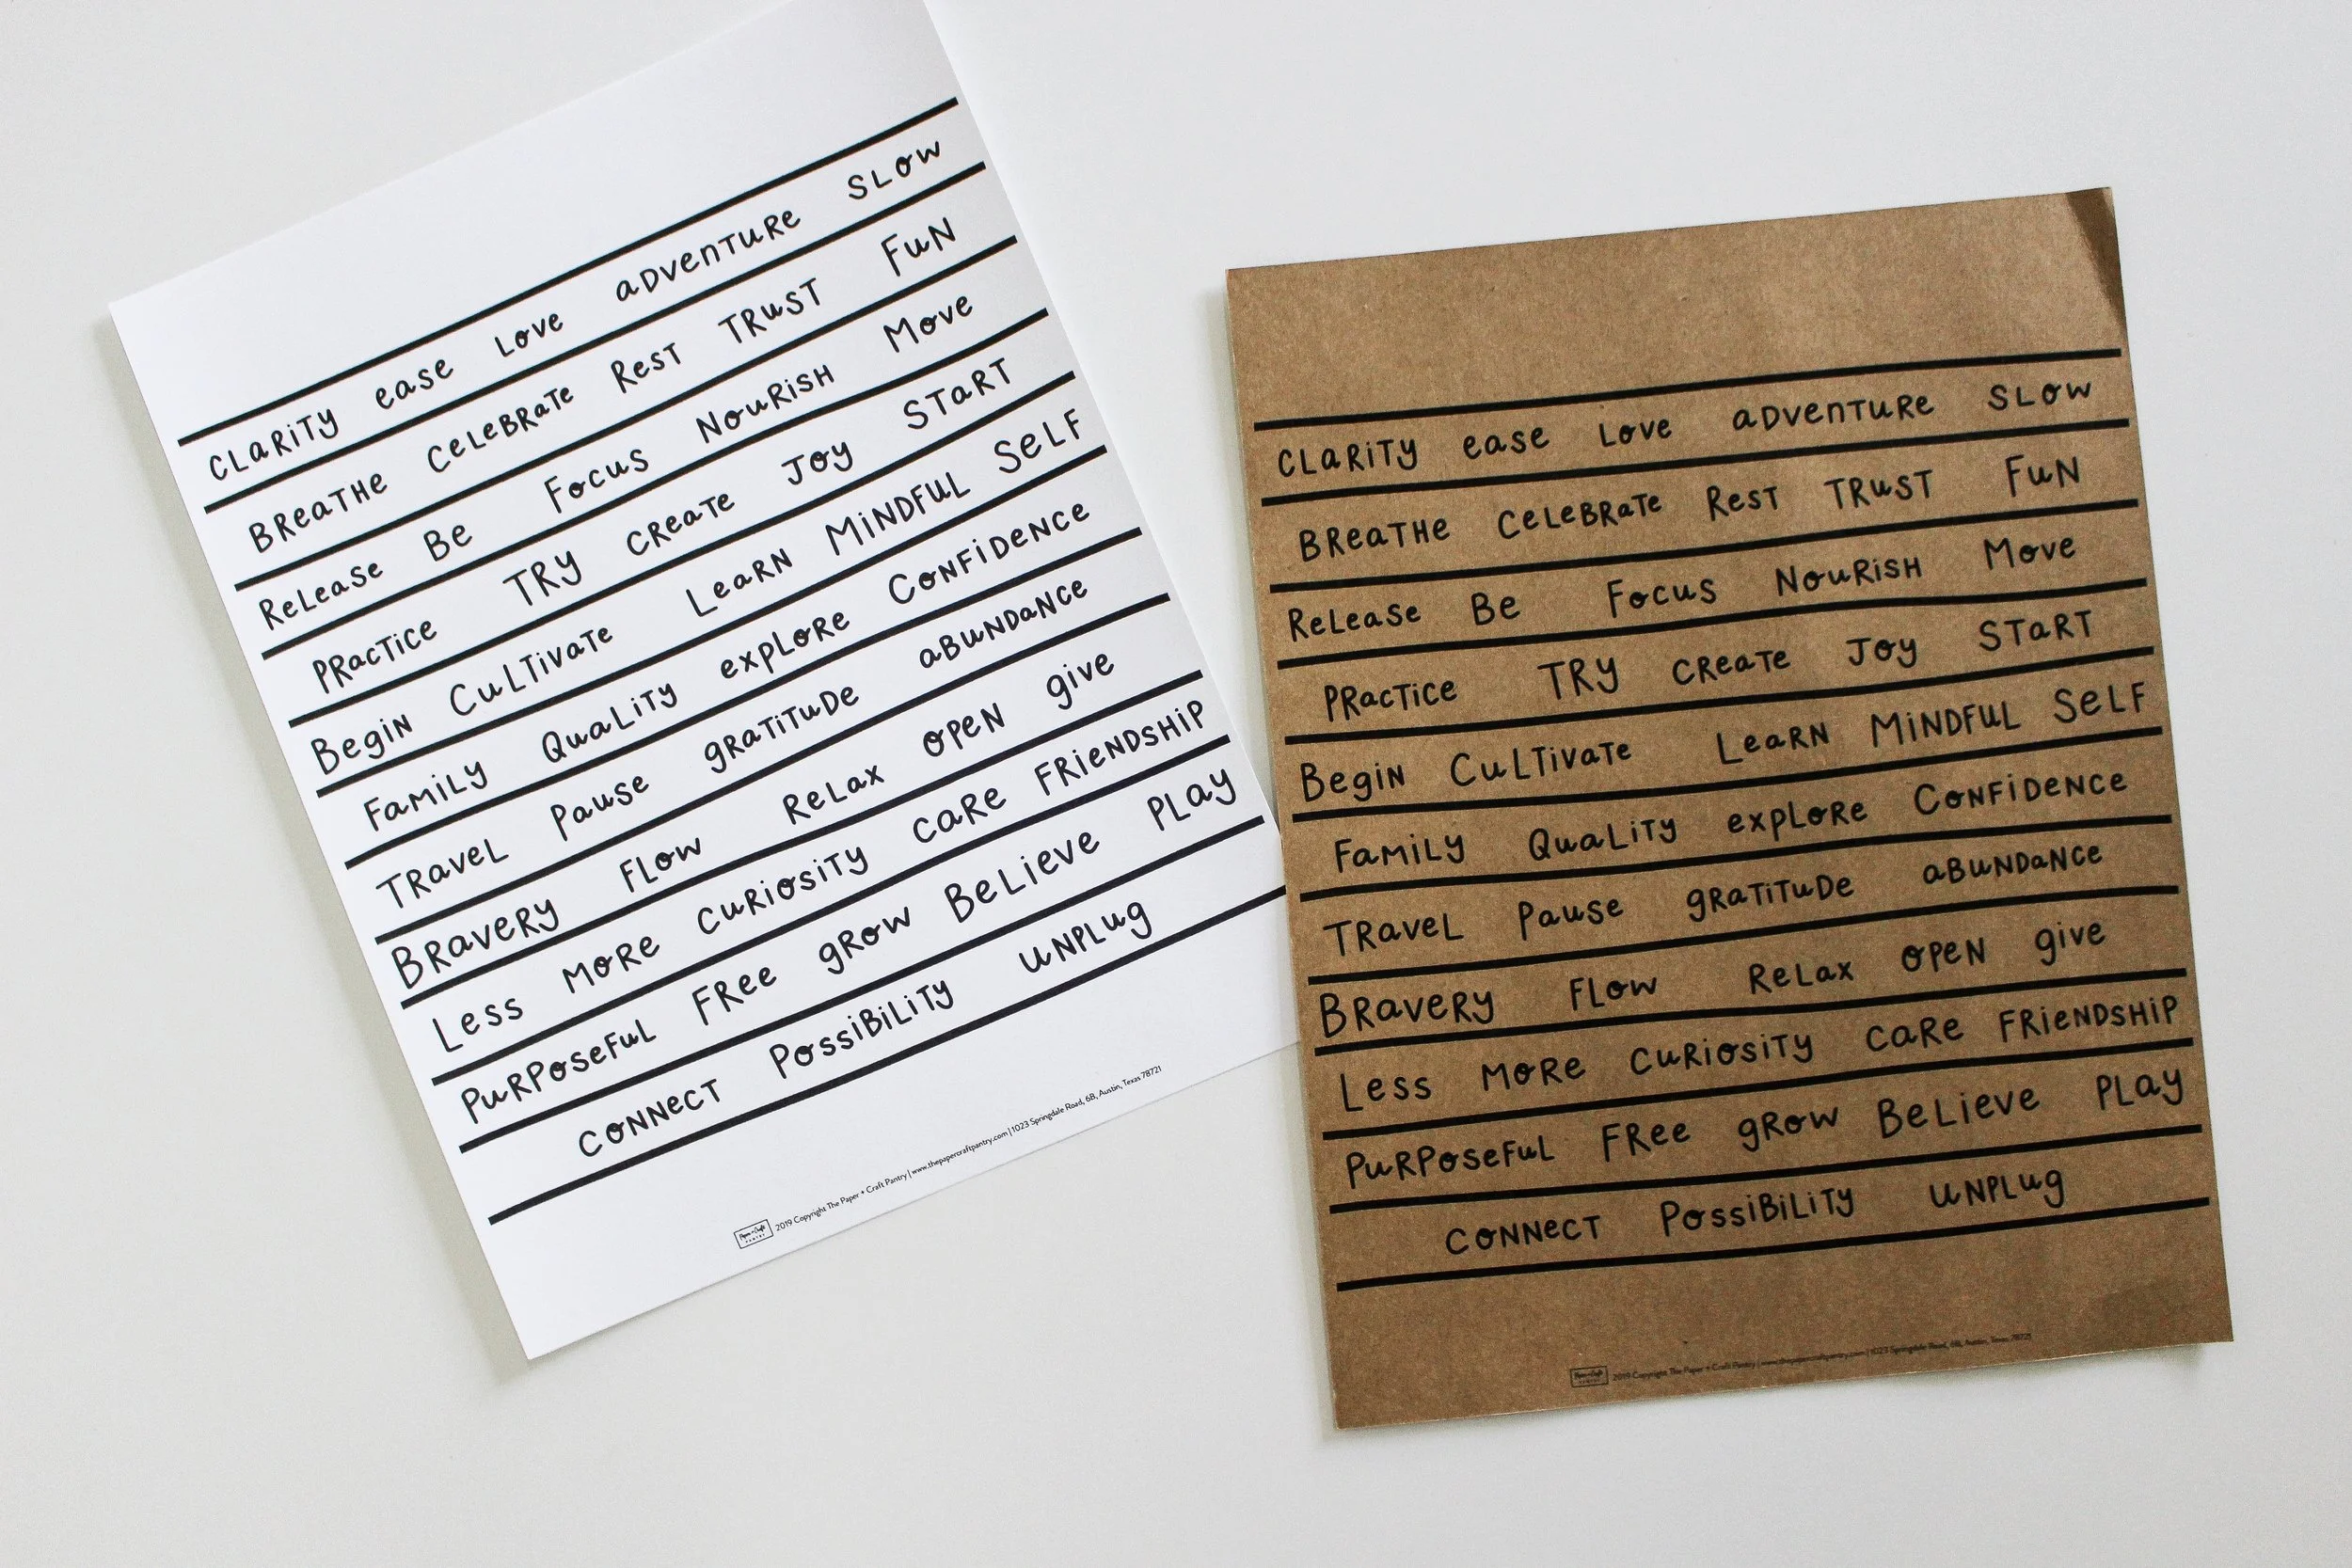 CLaRiTy ease Love aDVenTuRe SLow
BReaTHe CeLeBRaTe ResT TRuST FuN
ReLease Be Focus NouRiSH Move
PRacTice TRy CReaTe Joy STaRT
Begin CuLTivaTe LeaRN MiNDFuL SeLF
FaMiLy QuaLiTy expLoRe CoNFiDeNce
TRaveL Pause gRaTiTuDe aBuNDaNce
BRaveRy FLow ReLax open give
Less MoRe CuRiosiTy CaRe FRieNDSHiP
PuRPoseFuL FRee gRow BeLieve PLay
CoNNecT PossiBiLiTy uNPLug
Paper + Craft PANTRY 2019 Copyright The Paper + Craft Pantry | www.thepapercraftpantry.com | 1023 Springdale Road, 6B, Austin, Texas 78721
CLaRiTy ease Love aDVenTuRe SLow
BReaTHe CeLeBRaTe ResT TRuST FuN
ReLease Be Focus NouRiSH Move
PRacTice TRy CReaTe Joy STaRT
Begin CuLTivaTe LeaRN MiNDFuL SeLF
FaMiLy QuaLiTy expLoRe CoNFiDeNce
TRaveL Pause gRaTiTuDe aBuNDaNce
BRaveRy FLow ReLax open give
Less MoRe CuRiosiTy CaRe FRieNDSHiP
PuRPoseFuL FRee gRow BeLieve PLay
CoNNecT PossiBiLiTy uNPLug
Paper + Craft PANTRY 2019 Copyright The Paper + Craft Pantry | www.thepapercraftpantry.com | 1023 Springdale Road, 6B, Austin, Texas 78721